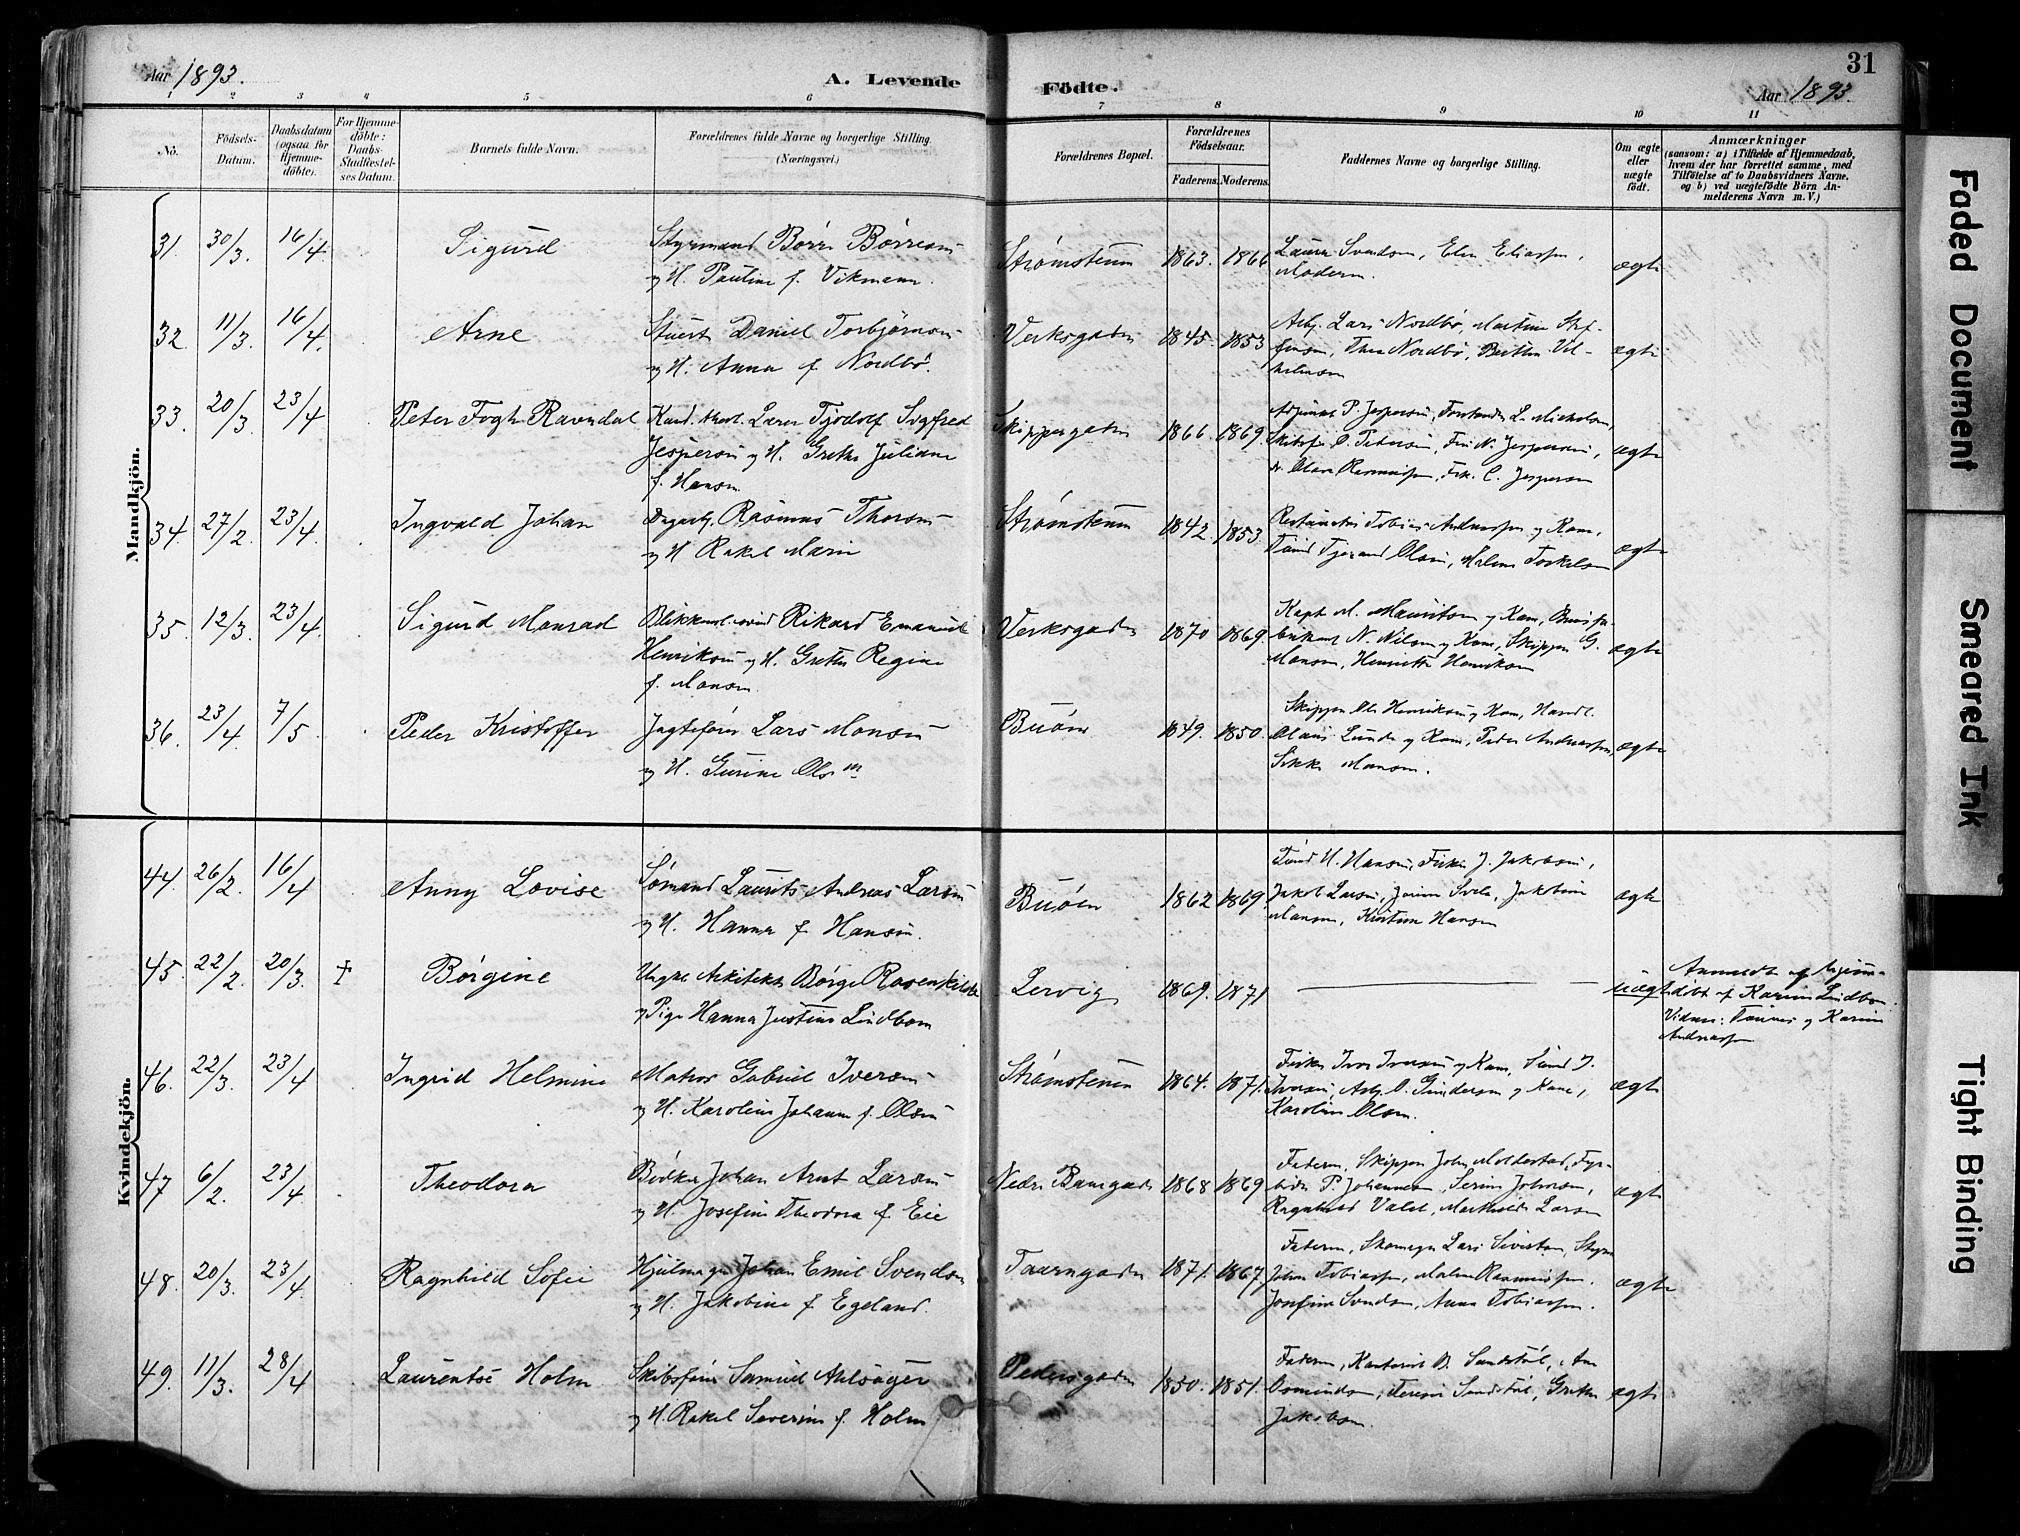 Aar 1893.
A. Levende
Födte.
31
Aar 1893.
1 2 3 4 5 6 7 8 9 10 11
No.
Födsels-Datum.
Daabsdatum (ogsaa for Hjemme-döbte).
For Hjemme-döbte: Daabs-Stadfestel-ses Datum.
Barnets fulde Navn.
Forældrenes fulde Navne og borgerlige Stilling.
(Næringsvei.)
Forældrenes Bopæl.
Forældrenes Födselsaar.
Faderens. Moderens.
Faddernes Navne og borgerlige Stilling.
Om ægte eller uægte födt.
Anmærkninger
(saasom: a) i Tilfælde af Hjemmedaab,
hvem der har forrettet samme, med
Tilföielse af to Daabsvidners Navne.
og b) ved uægtefödte Börn An-
melderens Navn m. V.)
Mandkjön.
31. 30/3. 16/4. Sigurd Styrmand Børre Børresen Strømstenen 1863. 1866 Laura Svendsen, Elen Eliassen, ægte
og H. Pauline f. Vikmann. Moderen.
32 11/3. 16/4. Arne Stuert Daniel Torbjørnsen Verksgaden 1845. 1853 Arb. Lars Nordbø, Martin Stef- ægte
og H. Anna f Nordbø. fensen, Thea Nordbø, Berthe Vil-
helmsen
33. 20/3. 23/4 Peter Fogh Ravndal Kand. theol. Lærer Tjodolf Sigfred Skippergaden 1866. 1869. Adjunkt P. Jespersen, L. Michelsen, ægte
Jespersen og H. Grethe Juliane O. Petersen, Fru N. Jespersen,
f. Hansen. Rasmussen, Frk. C. Jespersen
34. 27/2. 23/4. Ingvald Johan Dagarb. Rasmus Thorsen Strømstenen 1842. 1853. Tobias Andreassen og Kone, ægte
og H Rakel Marie Tønd Tjerand Olsen, Malene Torkelsen
35. 12/3. 23/4. Sigurd Monrad Rikard Emanuel Verksgaden 1870 1869. Kapt M. Mauritsen og Kone, ægte
Henriksen og H. Grethe Regine N. Nilsen og Kone, Skipper G.
f. Monsen. Monsen, Henriette Henriksen
36. 23/4. 7/5. Peder Kristoffer Jagtefører Lars Monsen Buøen 1849. 1850. Skipper Ole Henriksen og Kone, Handl. ægte
og H. Gurine Olsen Olaus Lunde og Kone, Peder Andreassen,
Sikke Monsen.
Kvindekjön.
44. 26/2. 16/4 Anny Lovise Sømand Laurits Andreas Larsen Buøen 1862 1869. Tønd H. Hansen, Fisker J. Jakobsen, ægte
og H. Hanna f Hansen. Jakob Larsen, Svela, Jakobine
Monsen, Kristine Hansen
45. 22/2. 20/3. † Børgine Ungkl Arkitekt Børge Rosenkilde Lervig 1869. 1871 — uægte Anmeldt og hjemme-
og Pige Hanna Justine Lindbom døbt af Karine Lindbom.
Vidner: og Karine
Andreassen
46. 22/3. 23/4 Ingrid Helmine Matros Gabriel Iversen Strømstenen 1864. 1871. Fisker Iver Iversen og Kone, Tønd I. ægte
og H. Karoline Johanne f. Olsen Iversen, Arb. O. Gundersen og Kone,
Karoline Olsen.
47 6/2. 23/4 Theodora Bødker Johan Arnt Larsen Nedre Banegade 1868 1869 Faderen, Skipper John Moldestad, Fyr- ægte
og H. Josefine Theodora f. Eie P. Johannesen, Serine Johnsen,
Ragnhild Valet, Mathilde Larsen
48. 20/3. 23/4. Ragnhild Sofie Hjulmager Johan Emil Svendsen Taarngaden 1871. 1867 Faderen, Skomager Lars Sivertsen, ægte
og H. Jakobine f Egeland. Johan Tobiassen, Malene Rasmussen,
Josefine Svendsen, Anna Tobiassen.
49. 11/3. 28/4 Laurentse Holm Skibsfører Samuel Ahlsager Pedersgaden 1850. 1851. Faderen, Kontorist B. Sandstøl, ægte
og H. Rakel Severine f. Holm Osmundsen, Terese Sandstøl, Grethe
Jakobsen.
Faded Document
Smeared Ink
Tight Binding